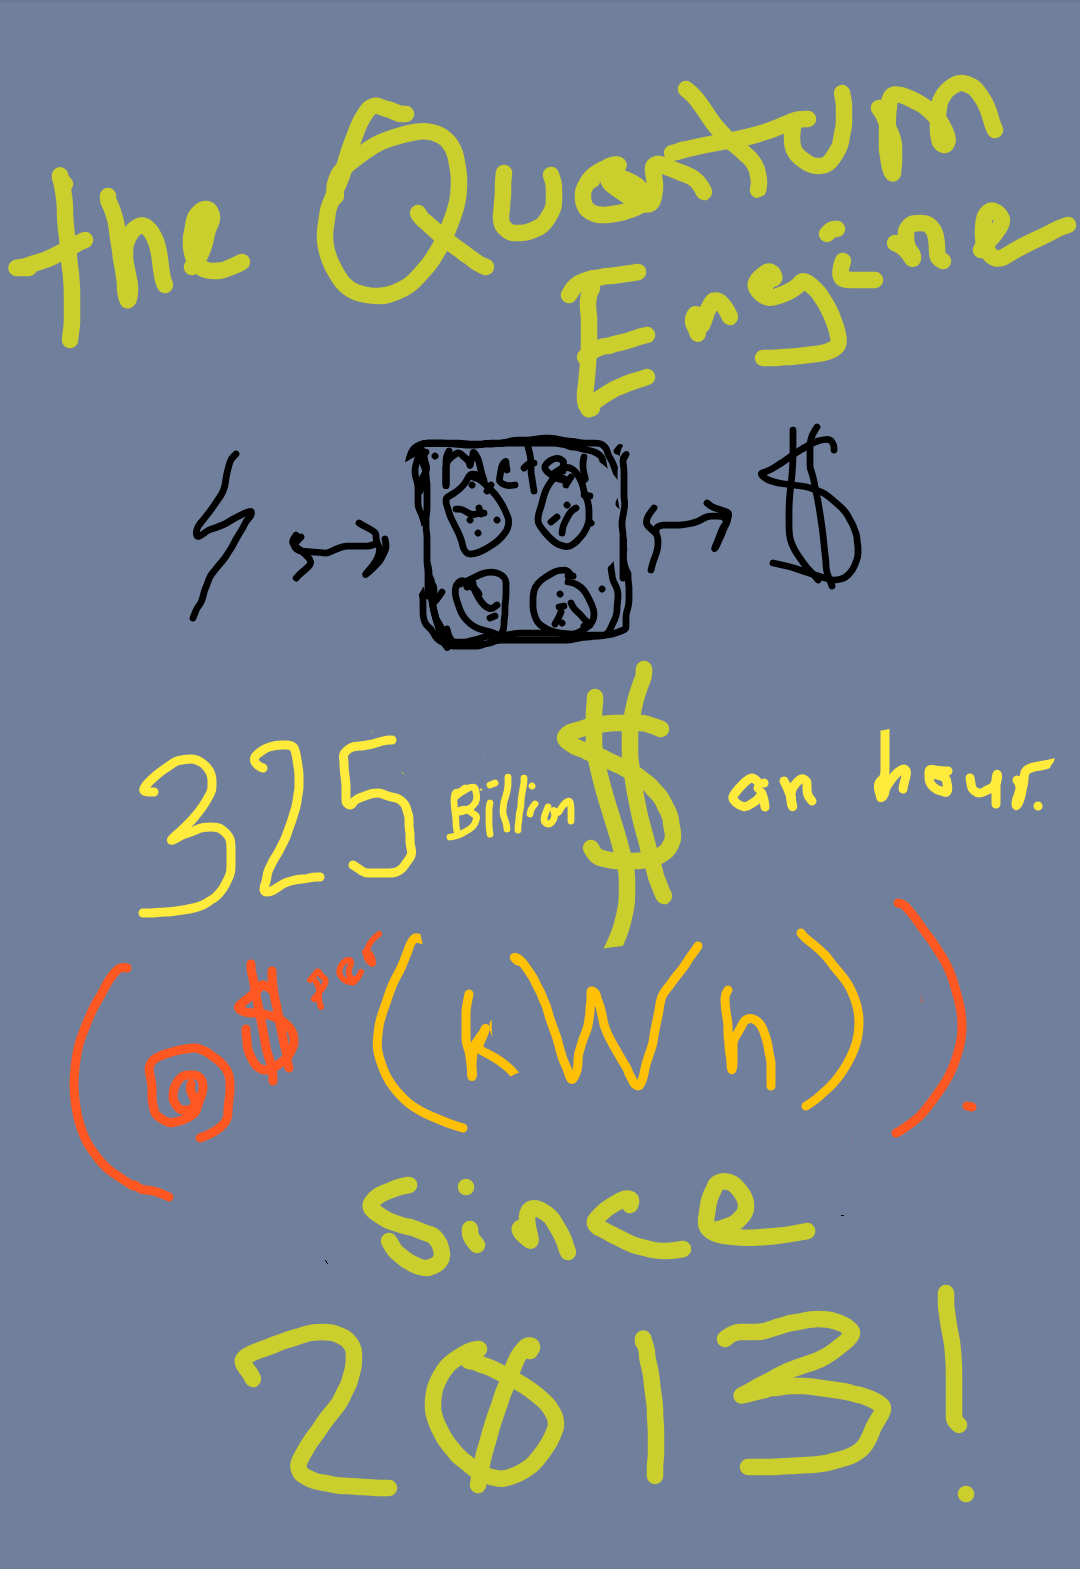 the Quantum
Engine
meter
$
325 Billion $ an hour.
(@ $ per (kWh)).
since
2013!